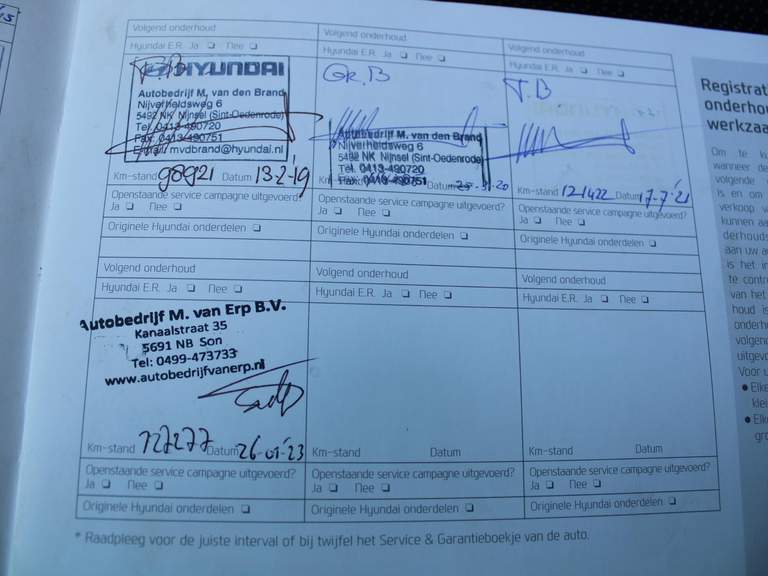 Volgend onderhoud
Hyundai E.R. Ja Nee
HYUNDAI
Autobedrijf M. van den Brand
Nijverheidsweg 6
5492 NK Nijnsel (Sint-Oedenrode)
Tel. 0413-490720
Fax. 0413-490751
E-mail: mvdbrand@hyundai.nl
Km-stand 98921 Datum 13-2-'19
Openstaande service campagne uitgevoerd?
Ja Nee
Originele Hyundai onderdelen
Volgend onderhoud
Hyundai E.R. Ja Nee
Gr.B
Autobedrijf M. van den Brand
Nijverheidsweg 6
5492 NK Nijnsel (Sint-Oedenrode)
Tel. 0413-490720
Fax. 0413-490751
Datum
20
Openstaande service campagne uitgevoerd?
Ja Nee
Originele Hyundai onderdelen
Volgend onderhoud
Hyundai E.R. Ja Nee
T.B
Km-stand 121422 Datum 17-7-'21
Openstaande service campagne uitgevoerd?
Ja Nee
Originele Hyundai onderdelen
Volgend onderhoud
Hyundai E.R. Ja Nee
Autobedrijf M. van Erp B.V.
Kanaalstraat 35
5691 NB Son
Tel: 0499-473733
www.autobedrijfvanerp.nl
Km-stand 127277 Datum 26-01-'23
Openstaande service campagne uitgevoerd?
Ja Nee
Originele Hyundai onderdelen
Volgend onderhoud
Hyundai E.R. Ja Nee
Km-stand Datum
Openstaande service campagne uitgevoerd?
Ja Nee
Originele Hyundai onderdelen
Volgend onderhoud
Hyundai E.R. Ja Nee
Km-stand Datum
Openstaande service campagne uitgevoerd?
Ja Nee
Originele Hyundai onderdelen
* Raadpleeg voor de juiste interval of bij twijfel het Service & Garantieboekje van de auto.
Registrat
onderhou
werkzaa
Om te k
wanneer de
volgende
is en om
verkoop v
kunnen aa
derhouds
aan uw a
is het in
te contr
van het
houd is
onderh
volgend
uitgevo
Voor u
• Elke
klei
• Elke
gro